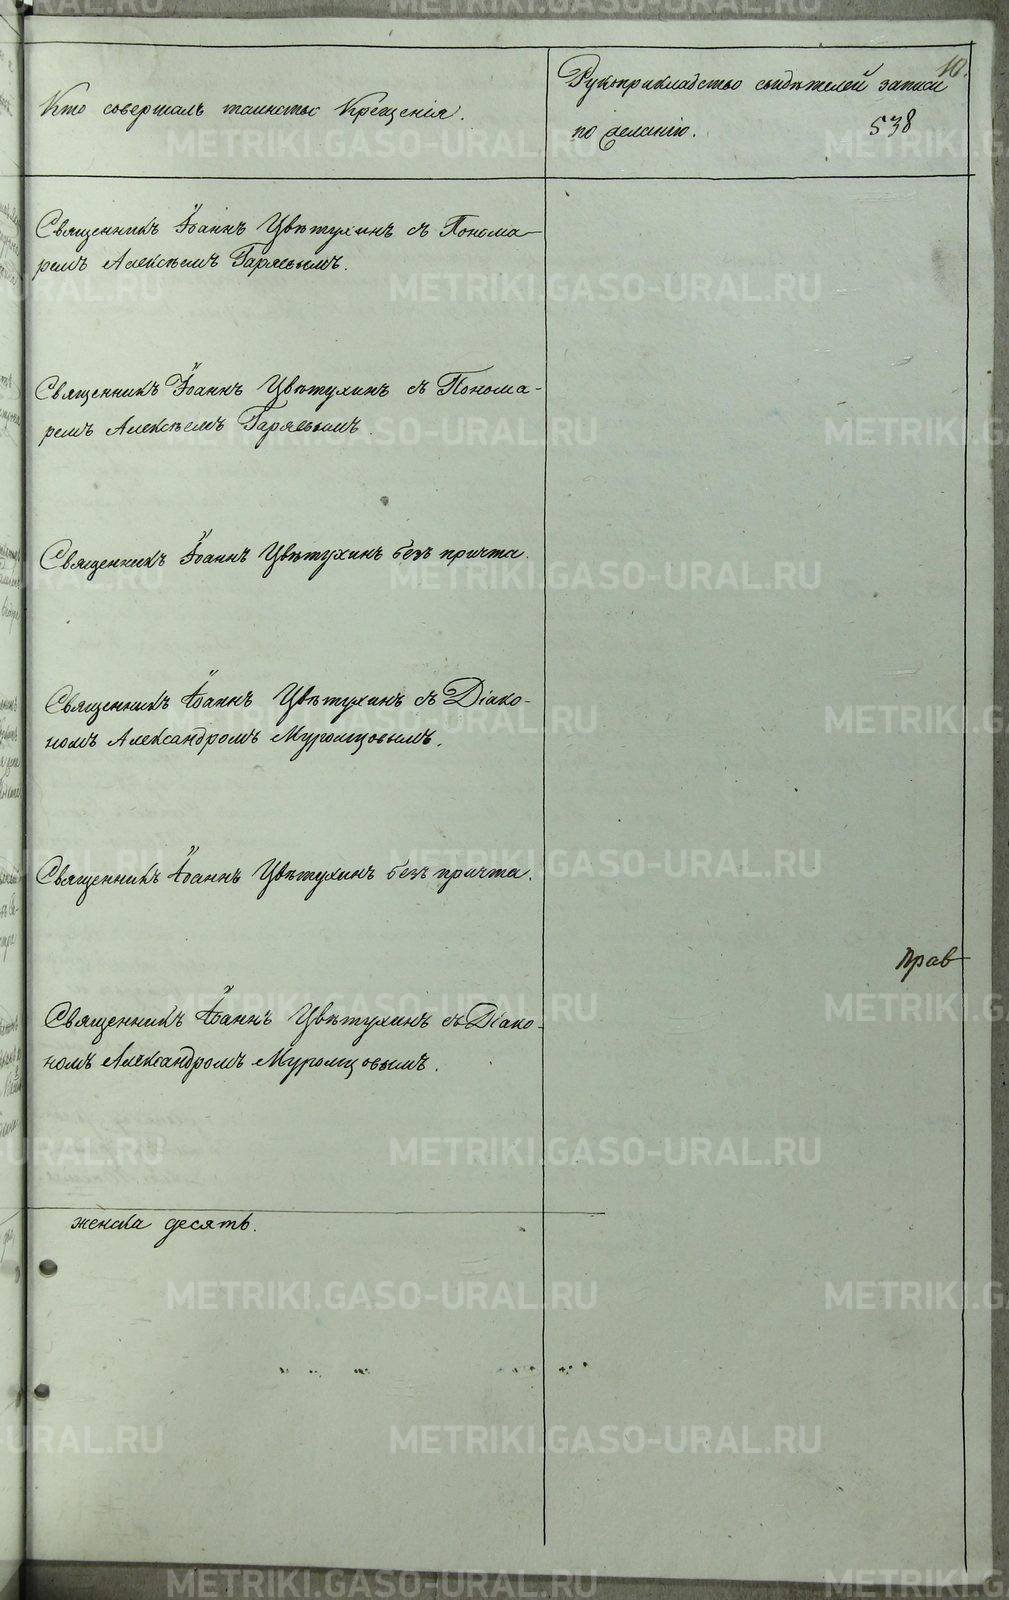 10.
Кто совершалъ таинство Крещенія.
Рукоприкладство свидѣтелей записи
по желанію.
538
Священникъ Іоаннъ Цвѣтухинъ съ Понома-
ремъ Алексѣемъ Гаряевымъ.
Священникъ Іоаннъ Цвѣтухинъ съ Понома-
ремъ Алексѣемъ Гаряевымъ
Священникъ Іоаннъ Цвѣтухинъ безъ причта.
Священникъ Іоаннъ Цвѣтухинъ съ Діако-
номъ Александромъ Муромцовымъ.
Священникъ Іоаннъ Цвѣтухинъ безъ причта.
прав
Священникъ Іоаннъ Цвѣтухинъ съ Діако-
номъ Александромъ Муромцовымъ.
женска десять.
METRIKI.GASO-URAL.RU